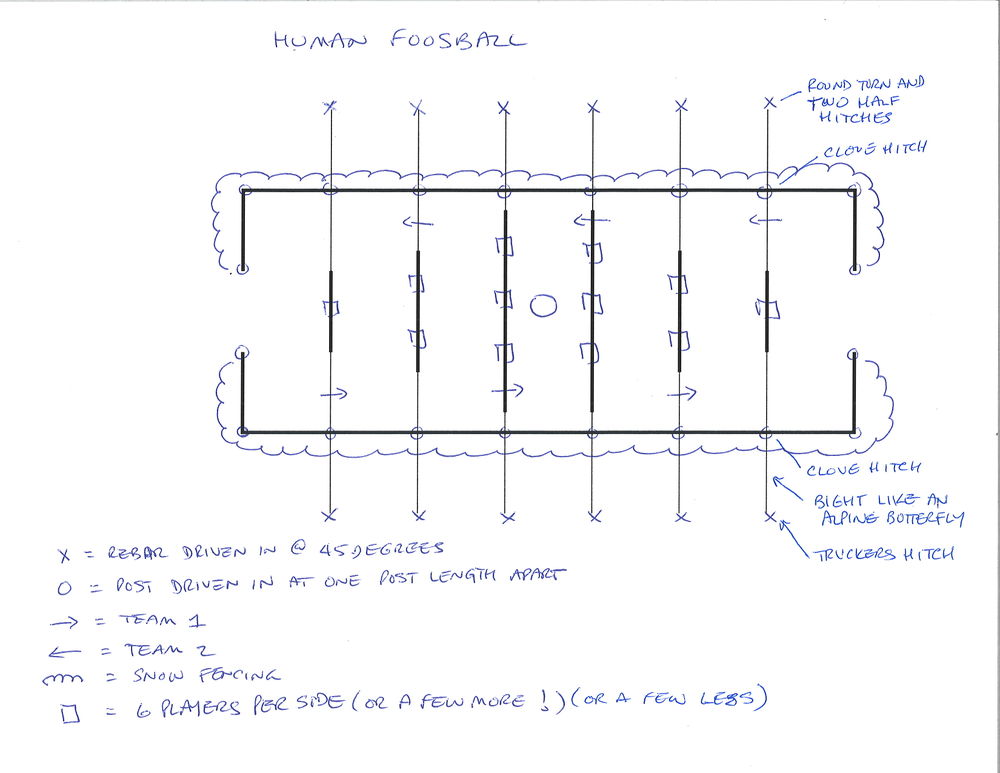 HUMAN FOOSBALL
ROUND TURN AND
TWO HALF
HITCHES
CLOVE HITCH
CLOVE HITCH
BIGHT LIKE AN
ALPINE BUTTERFLY
TRUCKERS HITCH
X = REBAR DRIVEN IN @ 45 DEGREES
O = POST DRIVEN IN AT ONE POST LENGTH APART
→ = TEAM 1
← = TEAM 2
= SNOW FENCING
□ = 6 PLAYERS PER SIDE (OR A FEW MORE !) (OR A FEW LESS)